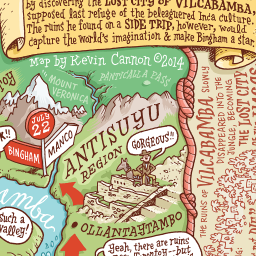 by discovering the LOST CITY OF VILCABAMBA,
supposed last refuge of the beleaguered Inca culture.
The ruins he found on a SIDE TRIP, however, would
capture the world's imagination & make Bingham a star.
Map by Kevin Cannon ©2014
MOUNT
VERONICA
PANTICALLA PASS
JULY
22
BINGHAM
MANCO
ANTISUYU
REGION
GORGEOUS!!
OLLANTAYTAMBO
such a
valley!
Yeah, there are ruins
THE RUINS OF VILCABAMBA SLOWLY
DISAPPEARED INTO THE
JUNGLE, BECOMING
THE LOST CITY